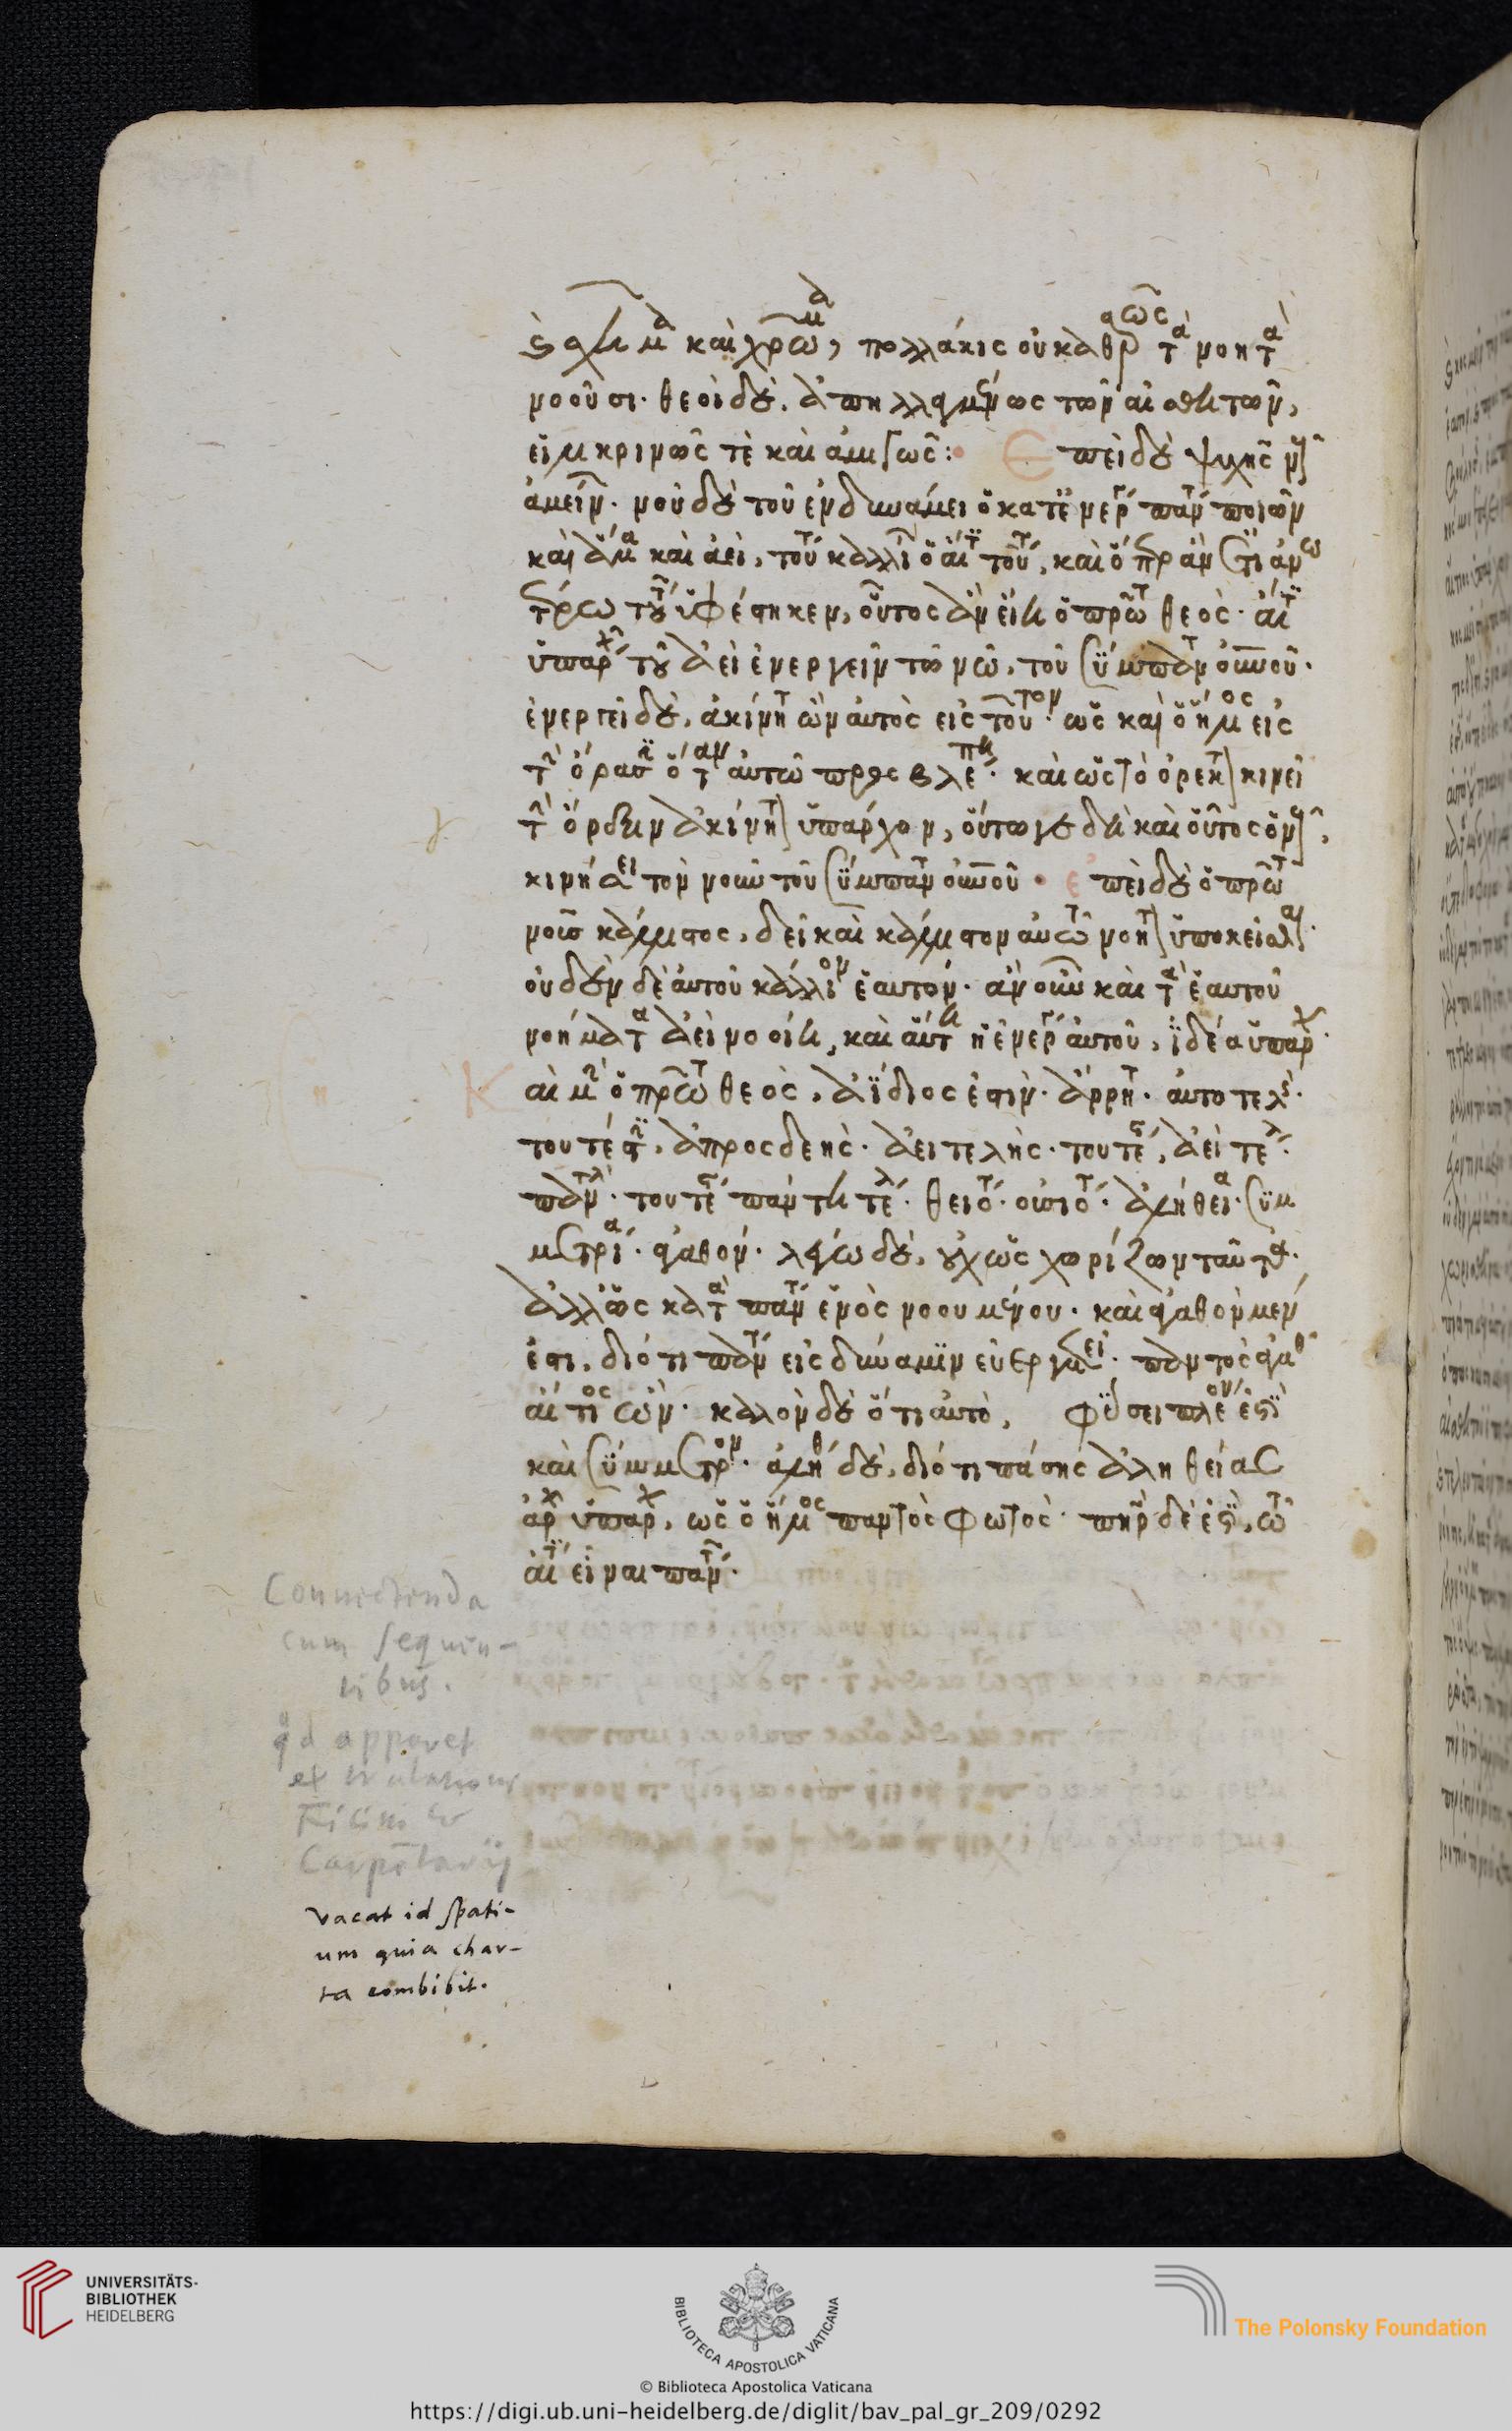 ἢ σχῆμα καὶ χρῶμα, πολλάκις οὐ καθαρῶς τὰ νοητὰ
νοοῦσι· θεοὶ δὲ, ἀπηλλαγμένως τῶν αἰσθητῶν,
εἰλικρινῶς τὲ καὶ ἀμιγῶς: Ἐπεὶ δὲ ψυχῆς νοῦς
ἀμείν. νοῦ δὲ τοῦ ἐν δυνάμει ὁ κατ ἐνέρ παν ποιῶν
καὶ ἅμα καὶ ἀεὶ, τού καλλί ὁ αἴτ τού, καὶ ὅπερ ἂν ἔτι ἀνω
τέρω τού ὑφέστηκεν, οὗτος ἂν εἴη ὁ πρῶτ θεὸς· αἴτ
ὑπάρχ τοῦ ἀεὶ ἐνεργεῖν τῶ νῶ, τοῦ σύμπαντ οὐνοῦ.
ἐνεργεῖ δὲ, ἀκίνητ ὢν αὐτὸς εἰς τοῦτον· ὡς καὶ ὁ ἥλιος εἰς
τὴν ὅρασιν ὅταν αὐτῶ προςβλέπη· καὶ ὡς τὸ ὀρεκτὸν κινεῖ
τὴν ὄρεξιν ἀκίνητον ὑπάρχον, οὕτω γε δὴ καὶ οὗτος ὁ νοῦς,
κινήσει τὸν νοῦν τοῦ σύμπαντ οὐνοῦ· ἐπεὶ δὲ ὁ πρῶτ
νοῦς κάλλιστος, δεῖ καὶ κάλλιστον αὐτῶ νοητὸν ὑποκεῖσθαι.
οὐδὲν δὲ αὐτοῦ κάλλιον ἑαυτόν· ἂν οὖν καὶ τὰ ἑαυτοῦ
νοήματα ἀεὶ νοοίη, καὶ αὕτη ἡ ἐνέρ αὐτοῦ, ἰδέα ὑπάρχ.
Καὶ μὴν ὁ πρῶτ θεὸς, ἀΐδιος ἐστὶν· ἄρρητ. αὐτοτελὴς.
τουτέστιν, ἀπροςδεης· ἀειτελὴς· τουτέστ, ἀεὶ τέλ.
παντελ· τουτέστ πάντη τέλ. θειότ. οὐσιότ. ἀλήθεια. συμ
μετρία. ἀγαθόν. λέγω δὲ, οὐχ ὡς χωρίζων ταῦτα.
ἀλλ ὡς κατὰ πάντ ἑνὸς νοουμένου. καὶ ἀγαθὸν μέν
ἐστι, διότι πάντ εἰς δύναμιν εὐεργετεῖ. παντὸς ἀγαθ
αἴτιος ὢν. καλὸν δὲ ὅτι αὐτὸ, φύσει πλέον ἐστὶ
καὶ σύμμετρον. ἀλήθ δὲ, διότι πάσης ἀληθείας
ἀρχ ὑπάρχ, ὡς ὁ ἥλιος παντὸς φωτὸς· πηρ δέ ἐστι, τῶ
αἴτ εἶναι πάντ.
Connectenda
cum sequen-
tibus.
qd apparet
ex
Ficini &
Carpētarij
vacat id spati-
um quia char-
ta combibit.
UNIVERSITÄTS-
BIBLIOTHEK
HEIDELBERG
BIBLIOTECA APOSTOLICA VATICANA
The Polonsky Foundation
© Biblioteca Apostolica Vaticana
https://digi.ub.uni-heidelberg.de/diglit/bav_pal_gr_209/0292